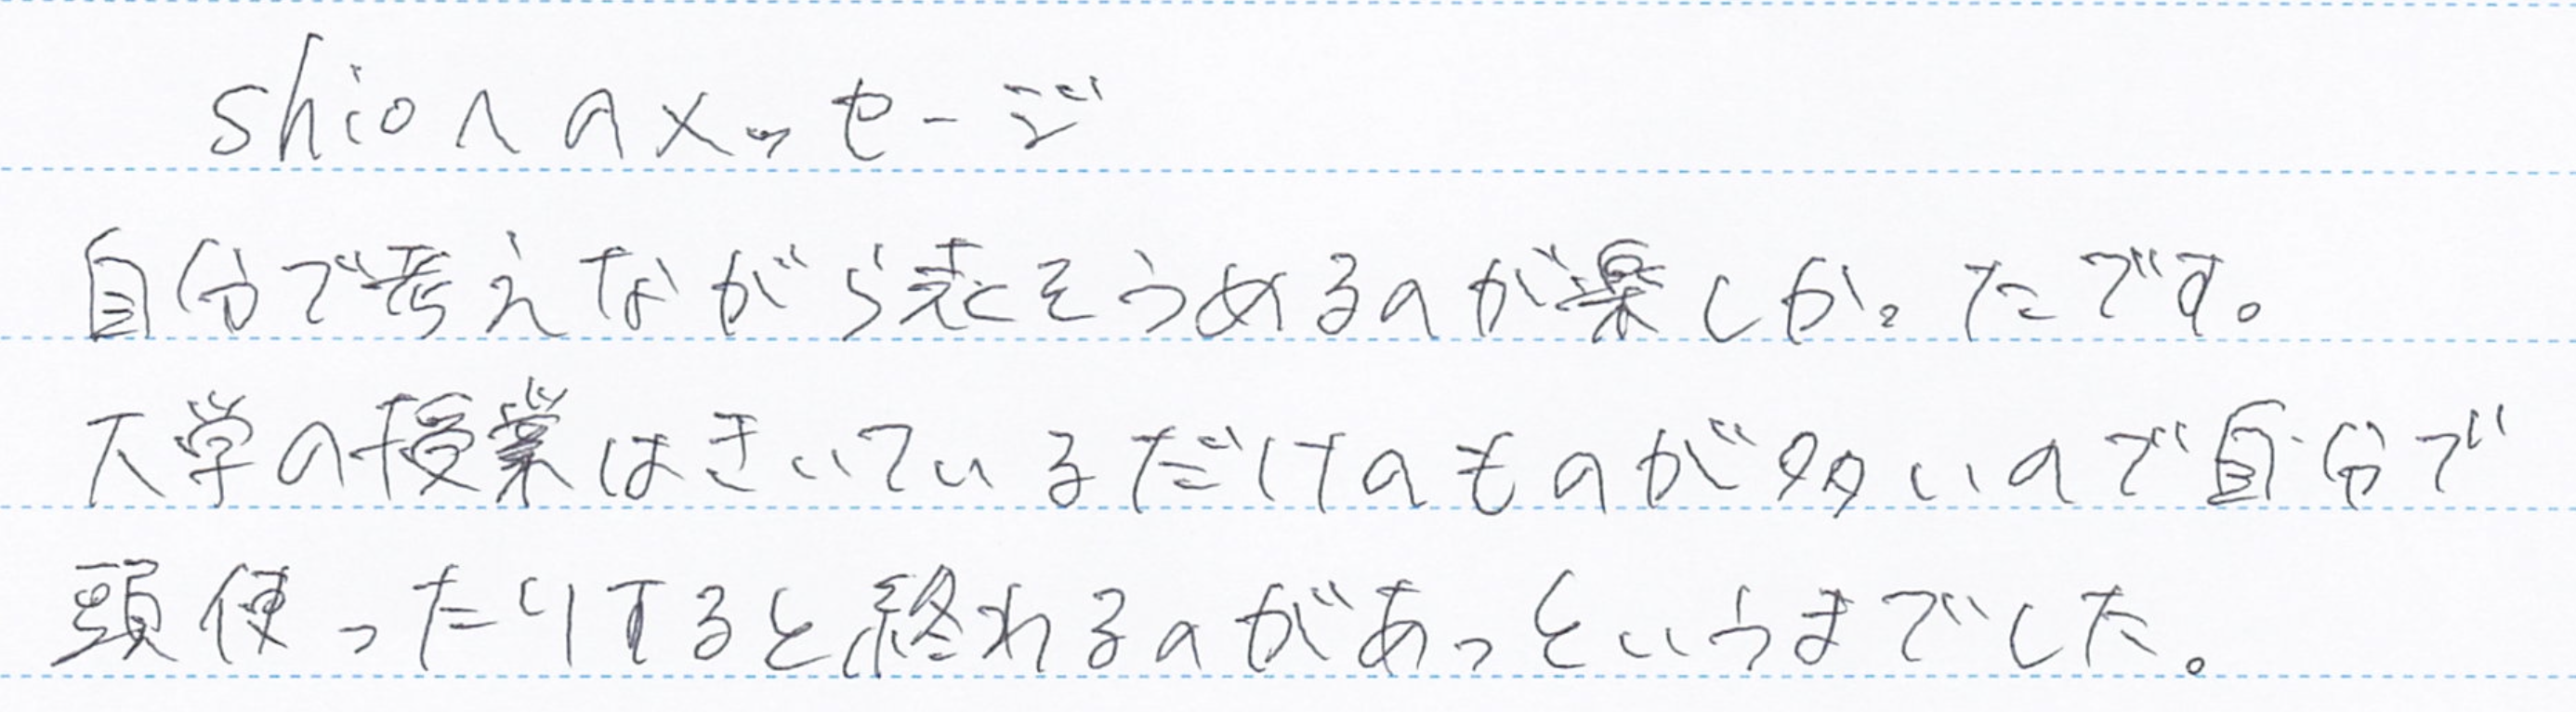 shioへのメッセージ
自分で考えながら表をうめるのが楽しかったです。
大学の授業はきいているだけのものが多いので自分で
頭使ったりすると終れるのがあっというまでした。